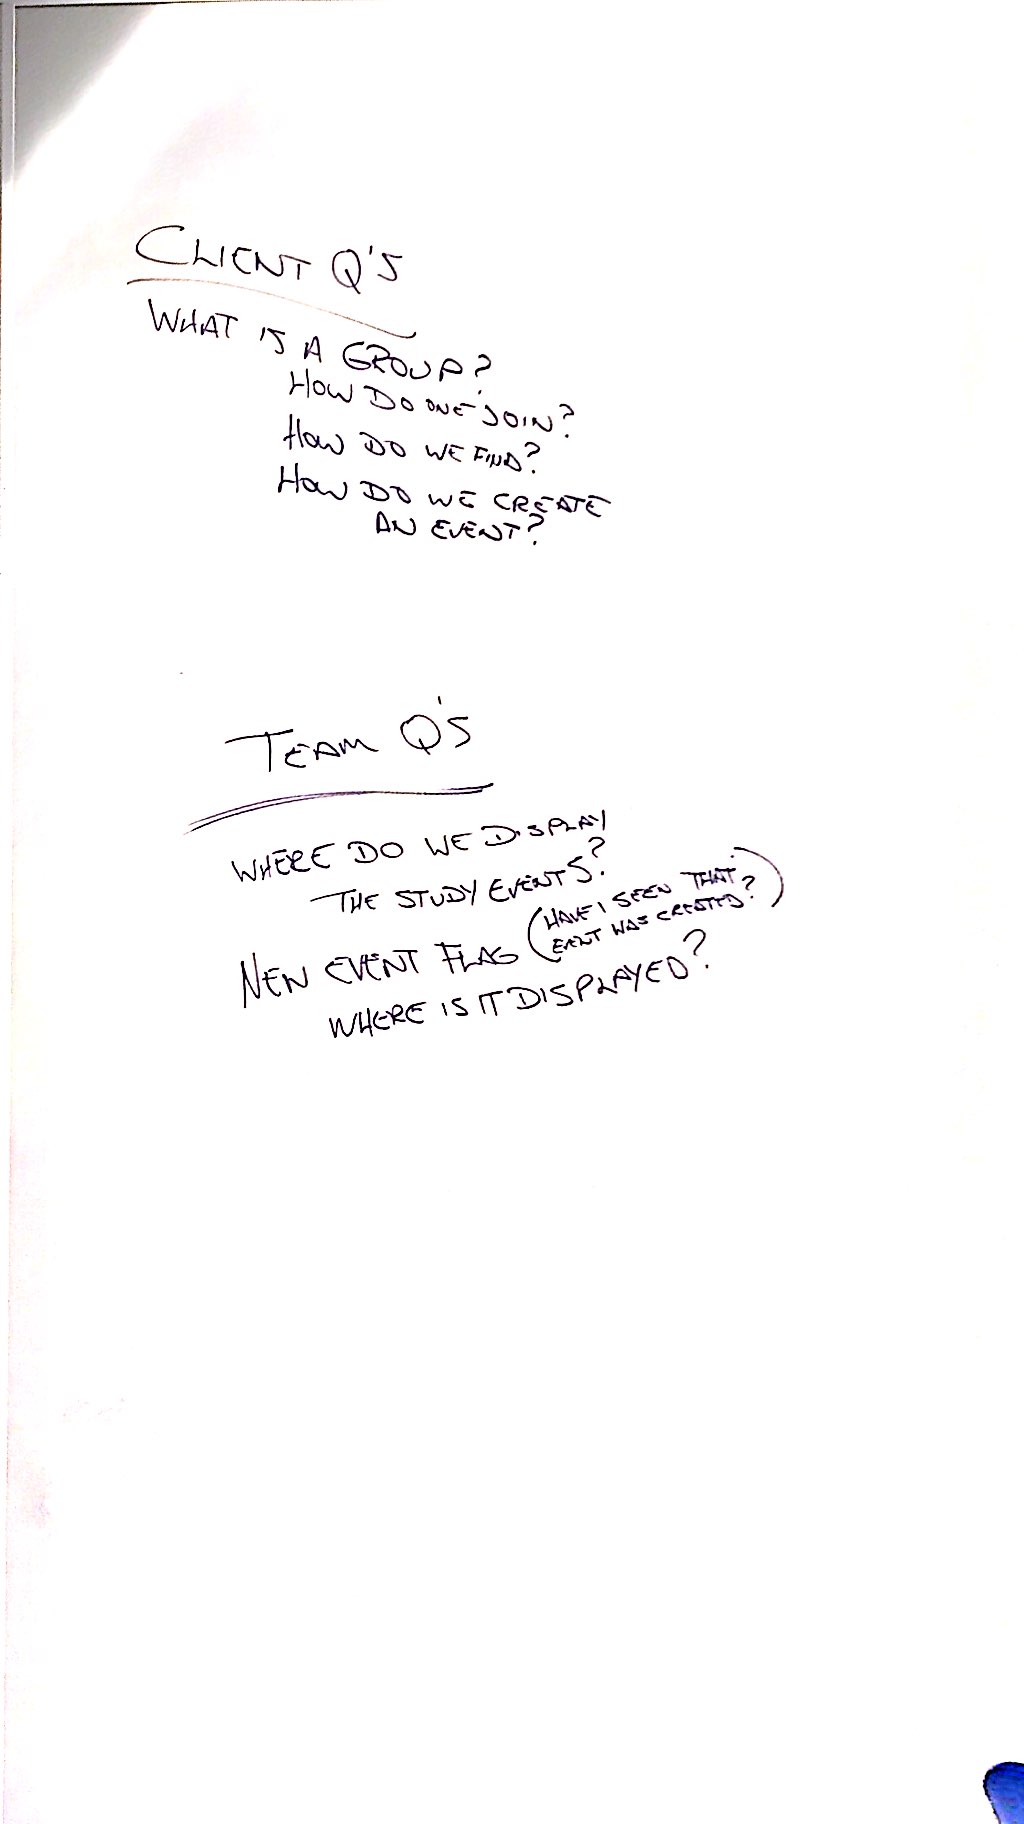 CLIENT Q'S
WHAT IS A GROUP?
HOW DO ONE JOIN?
HOW DO WE FIND?
HOW DO WE CREATE
AN EVENT?
TEAM Q'S
WHERE DO WE DISPLAY
THE STUDY EVENTS?
NEW EVENT FLAG (HAVE I SEEN THAT
EVENT WAS CREATED?)
WHERE IS IT DISPLAYED?